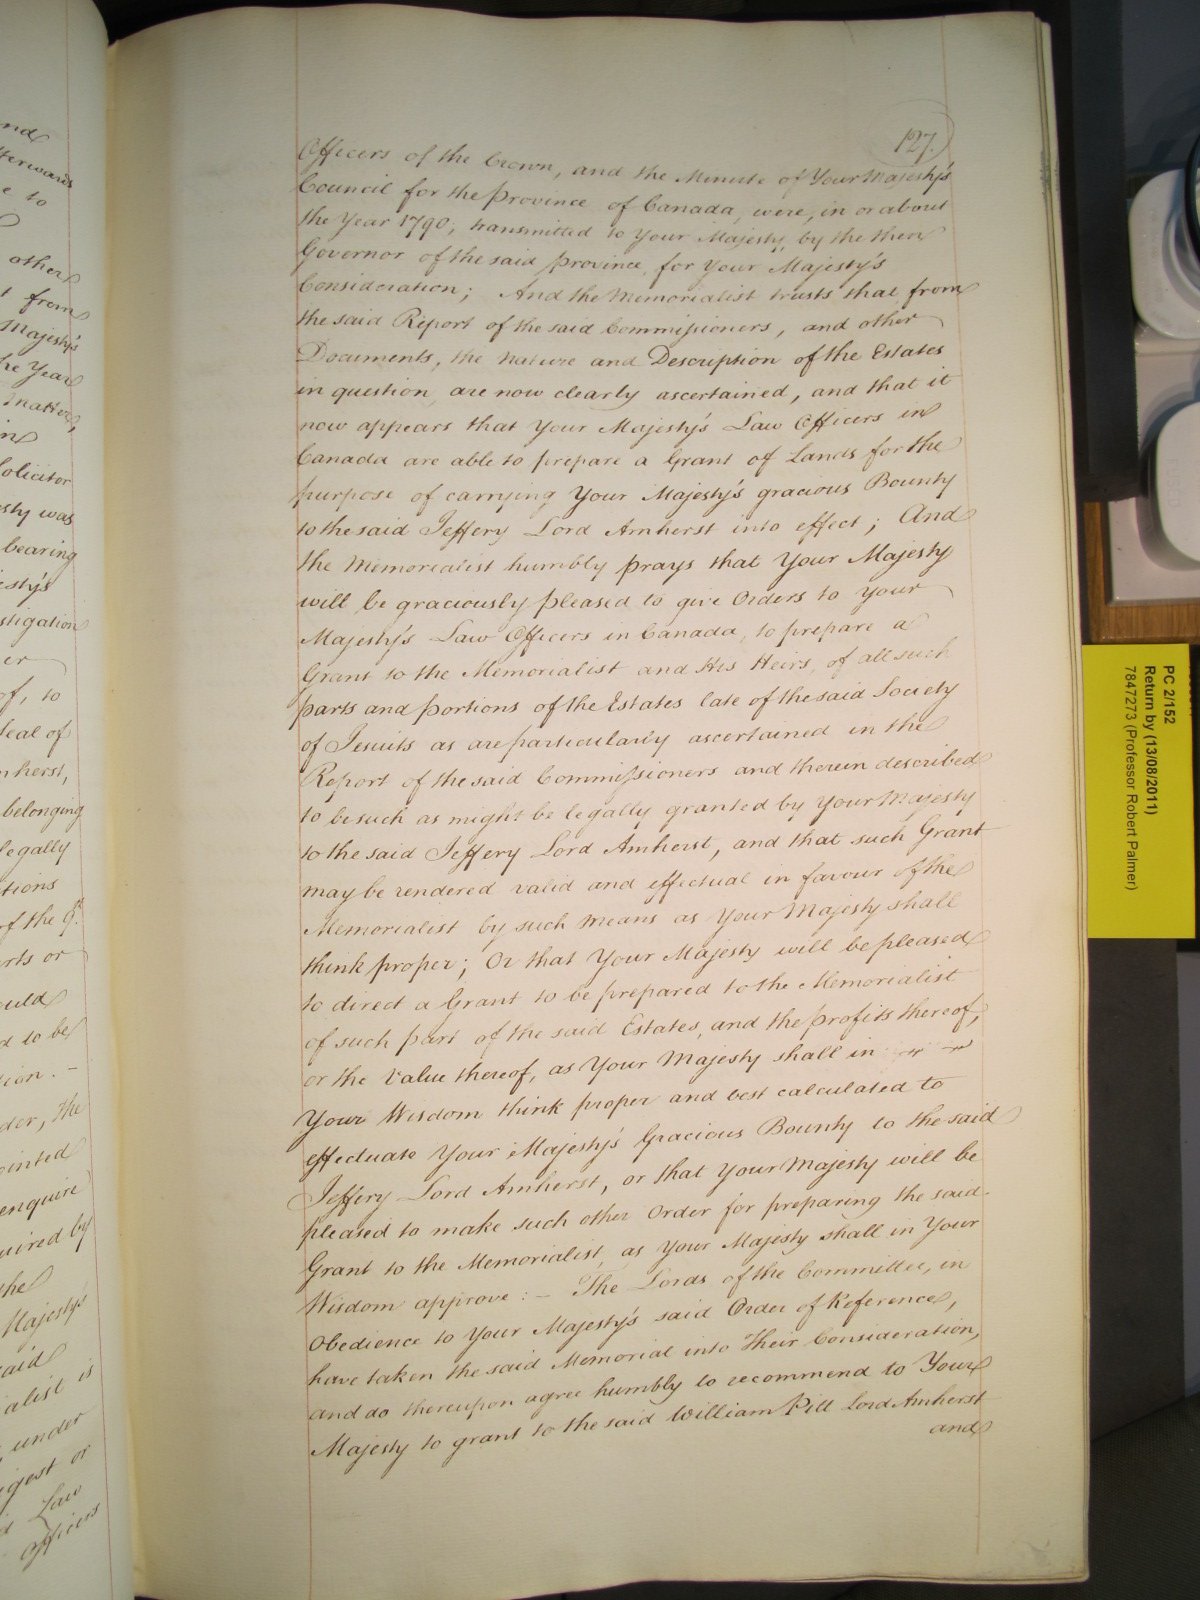 127.
Officers of the Crown, and the Minute of Your Majesty's
Council for the Province of Canada, were, in or about
the Year 1790, transmitted to Your Majesty, by the then
Governor of the said Province, for Your Majesty's
Consideration; And the Memorialist trusts that from
the said Report of the said Commissioners, and other
Documents, the Nature and Description of the Estates
in question, are now clearly ascertained, and that it
now appears that Your Majesty's Law Officers in
Canada are able to prepare a Grant of Lands for the
purpose of carrying Your Majesty's gracious Bounty
to the said Jeffery Lord Amherst into effect; And
the Memorialist humbly prays that Your Majesty
will be graciously pleased to give Orders to Your
Majesty's Law Officers in Canada, to prepare a
Grant to the Memorialist and His Heirs, of all such
parts and portions of the Estates late of the said Society
of Jesuits as are particularly ascertained in the
Report of the said Commissioners and therein described
to be such as might be legally granted by Your Majesty
to the said Jeffery Lord Amherst, and that such Grant
may be rendered valid and effectual in favour of the
Memorialist by such Means as Your Majesty shall
think proper; Or that Your Majesty will be pleased
to direct a Grant to be prepared to the Memorialist
of such part of the said Estates, and the profits thereof,
or the Value thereof, as Your Majesty shall in
Your Wisdom think proper and best calculated to
effectuate Your Majesty's Gracious Bounty to the said
Jeffery Lord Amherst, or that Your Majesty will be
pleased to make such other Order for preparing the said
Grant to the Memorialist, as Your Majesty shall in Your
Wisdom approve:- The Lords of the Committee, in
Obedience to Your Majesty's said Order of Reference,
have taken the said Memorial into Their Consideration,
and do thereupon agree humbly to recommend to Your
Majesty to grant to the said William Pitt Lord Amherst
and
and
other
from
Majesty's
the Year
in
Solicitor
was
bearing
er
of, to
belonging
legally
of the
or
d to be
enquire
by
the
Majesty's
alist is
under
or
Law
Officers
PC 2/152
Return by (13/08/2011)
7847273 (Professor Robert Palmer)